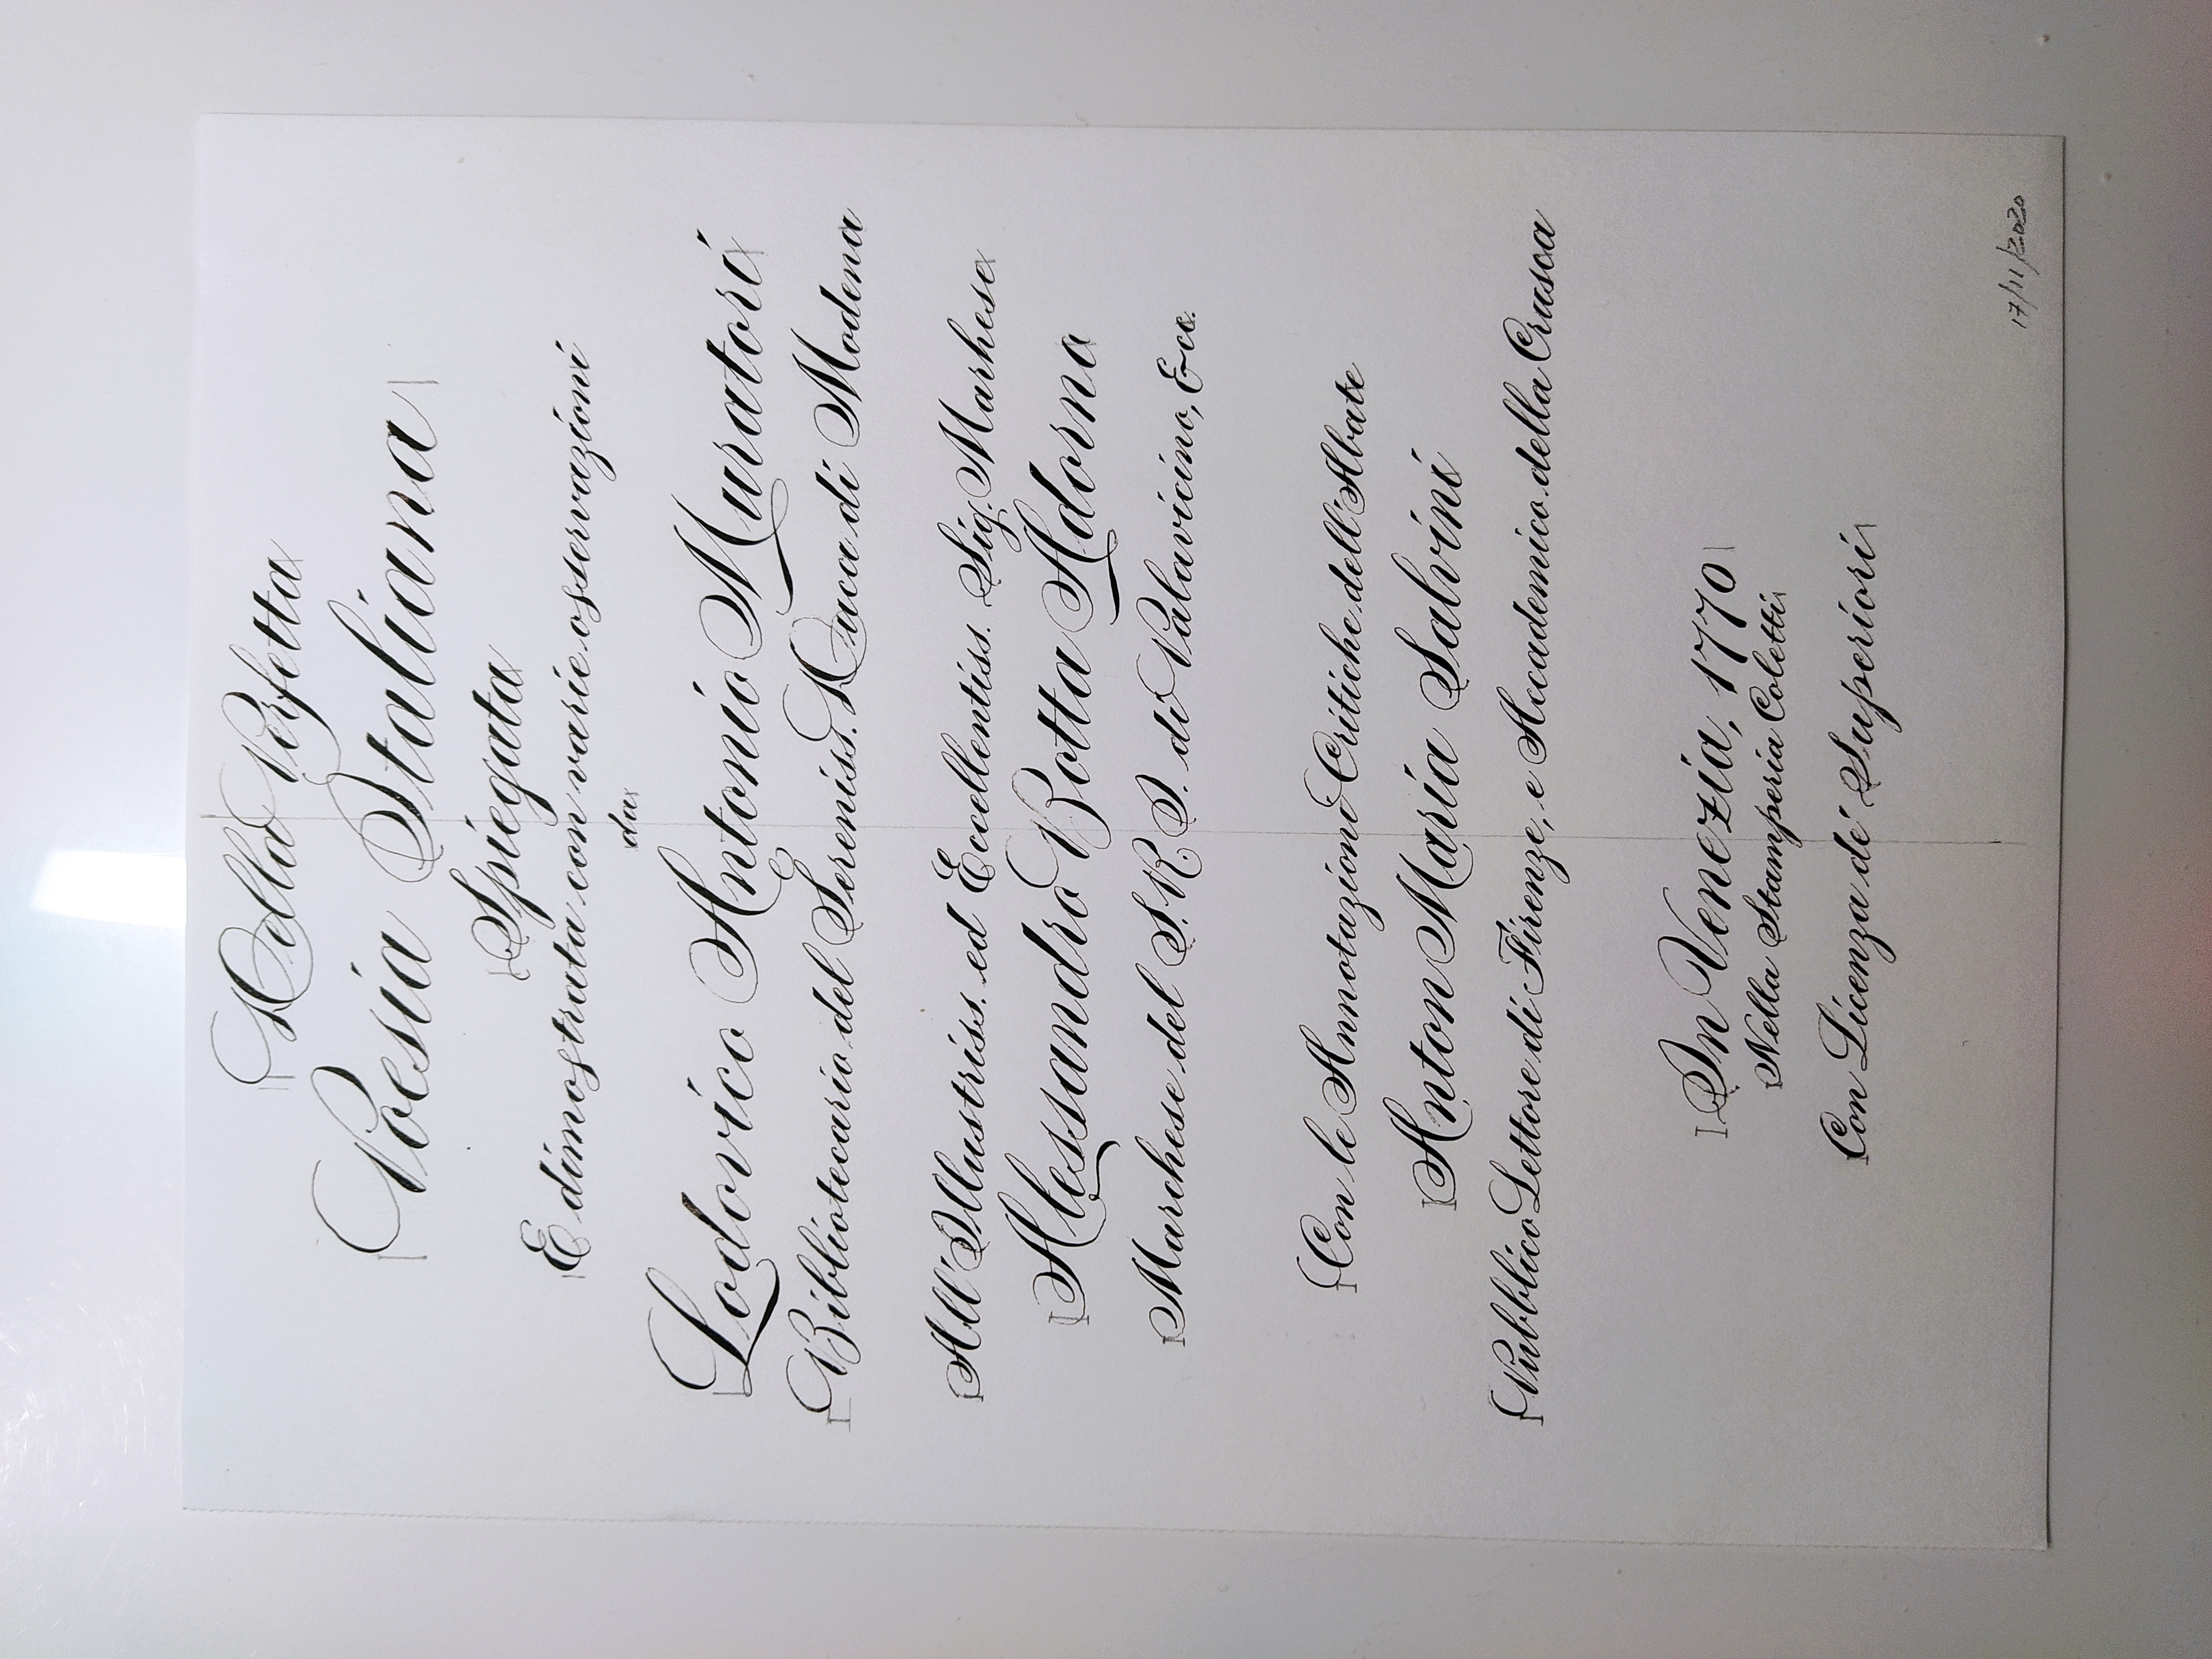 Della Perfetta
Poesia Italiana
Spiegata
E dimostrata con varie osservazioni
da
Lodovico Antonio Muratori
Bibliotecario del Sereniss. Duca di Modena
All'Illustriss. ed Eccellentiss. Sig. Marhese
Alessandro Botta Adorno
Marchese del S.R.I. di Palavicino, Ecc.
Con le Annotazioni Critiche dell'Abate
Anton Maria Salvini
Pubblico Lettore di Firenze, e Accademico della Crusca
In Venezia, 1770
Nella Stamperia Coletti
Con Licenza de' Superiori
17/11/2020